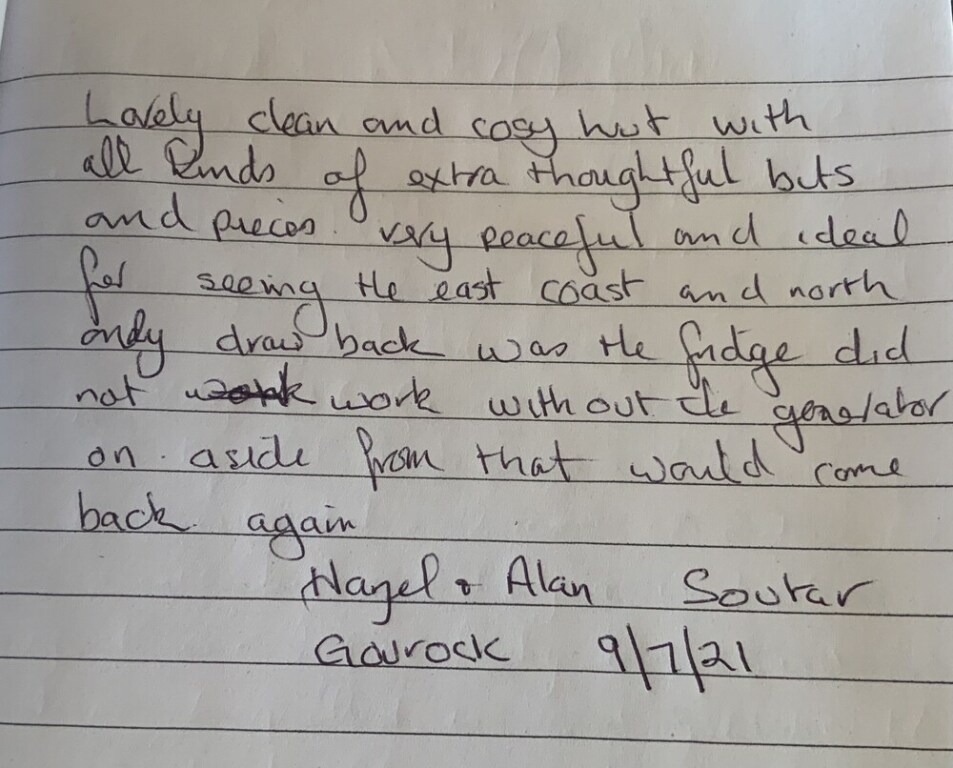 Lovely clean and cosy hut with
all kinds of extra thoughtful bits
and pieces. very peaceful and ideal
for seeing the east coast and north
only draw back was the fridge did
not work work without the generator
on. aside from that would come
back. again
Hazel & Alan Soutar
Gourock 9/7/21